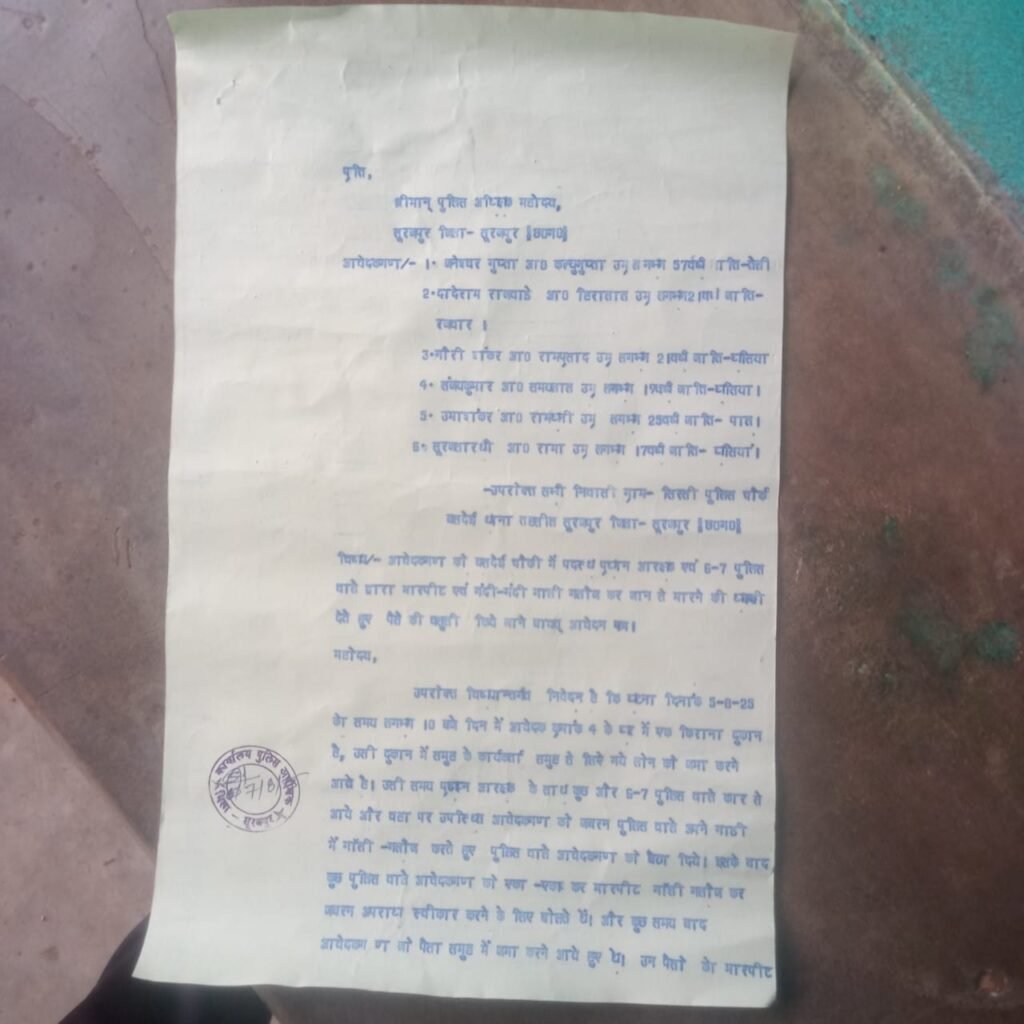 प्रति,
श्रीमान् पुलिस अधिक्षक महोदय,
सूरजपुर जिला- सूरजपुर §छ0ग0§
आवेदकगण/- 1. गुप्ता आ0 उम्र लगभग 57वर्ष जाति-तेली
2. राजवाडे आ0 उम्र लगभग 21वर्ष जाति-
रजवार ।
3.गौरी शंकर आ0 रामप्रसाद उम्र लगभग 21वर्ष जाति-घसिया
4. संजयकुमार आ0 उम्र लगभग 19वर्ष जाति-घसिया।
5. उमाशंकर आ0 उम्र लगभग 25वर्ष जाति-
6. आ0 रामा उम्र लगभग 17वर्ष जाति- घसिया।
-उपरोक्त सभी निवासी ग्राम- पुलिस चौकी
थाना तहसील सूरजपुर जिला- सूरजपुर §छ0ग0§
विषय/- आवेदकगण को चौकी में पदस्थ प्रधान आरक्षक एवं 6-7 पुलिस
वाले द्वारा मारपीट एवं गंदी-गंदी गाली गलौज कर जान से मारने की धमकी
देते हुए पैसे की वसुली किये जाने बाबत् आवेदन पत्र।
महोदय,
उपरोक्त विषयान्तर्गत निवेदन है कि घटना दिनांक 5-8-25
का समय लगभग 10 बजे दिन में आवेदक क्रमांक 4 के घर में एक किराना दुकान
है, उसी दुकान में समुह के कार्यकर्ता समुह से लिये गये लोन को जमा करने
आये थे। उसी समय प्रधान आरक्षक के साथ कुछ और 6-7 पुलिस वाले कार से
आये और वहा पर उपस्थित आवेदकगण को जबरन पुलिस वाले अपने गाडी
में गॉली -गलौज करते हुए पुलिस वाले आवेदकगण को बैठा दिये। उसके बाद
कुछ पुलिस वाले आवेदकगण को एका -एक कर मारपीट गॉली गलौज कर
जबरन अपराध स्वीकार करने के लिए बोलते थे। और कुछ समय बाद
आवेदकगण जो पैसा समुह में जमा करने आये हुए थे। उन पैसो का मारपीट
कार्यालय पुलिस अधीक्षक
सूरजपुर